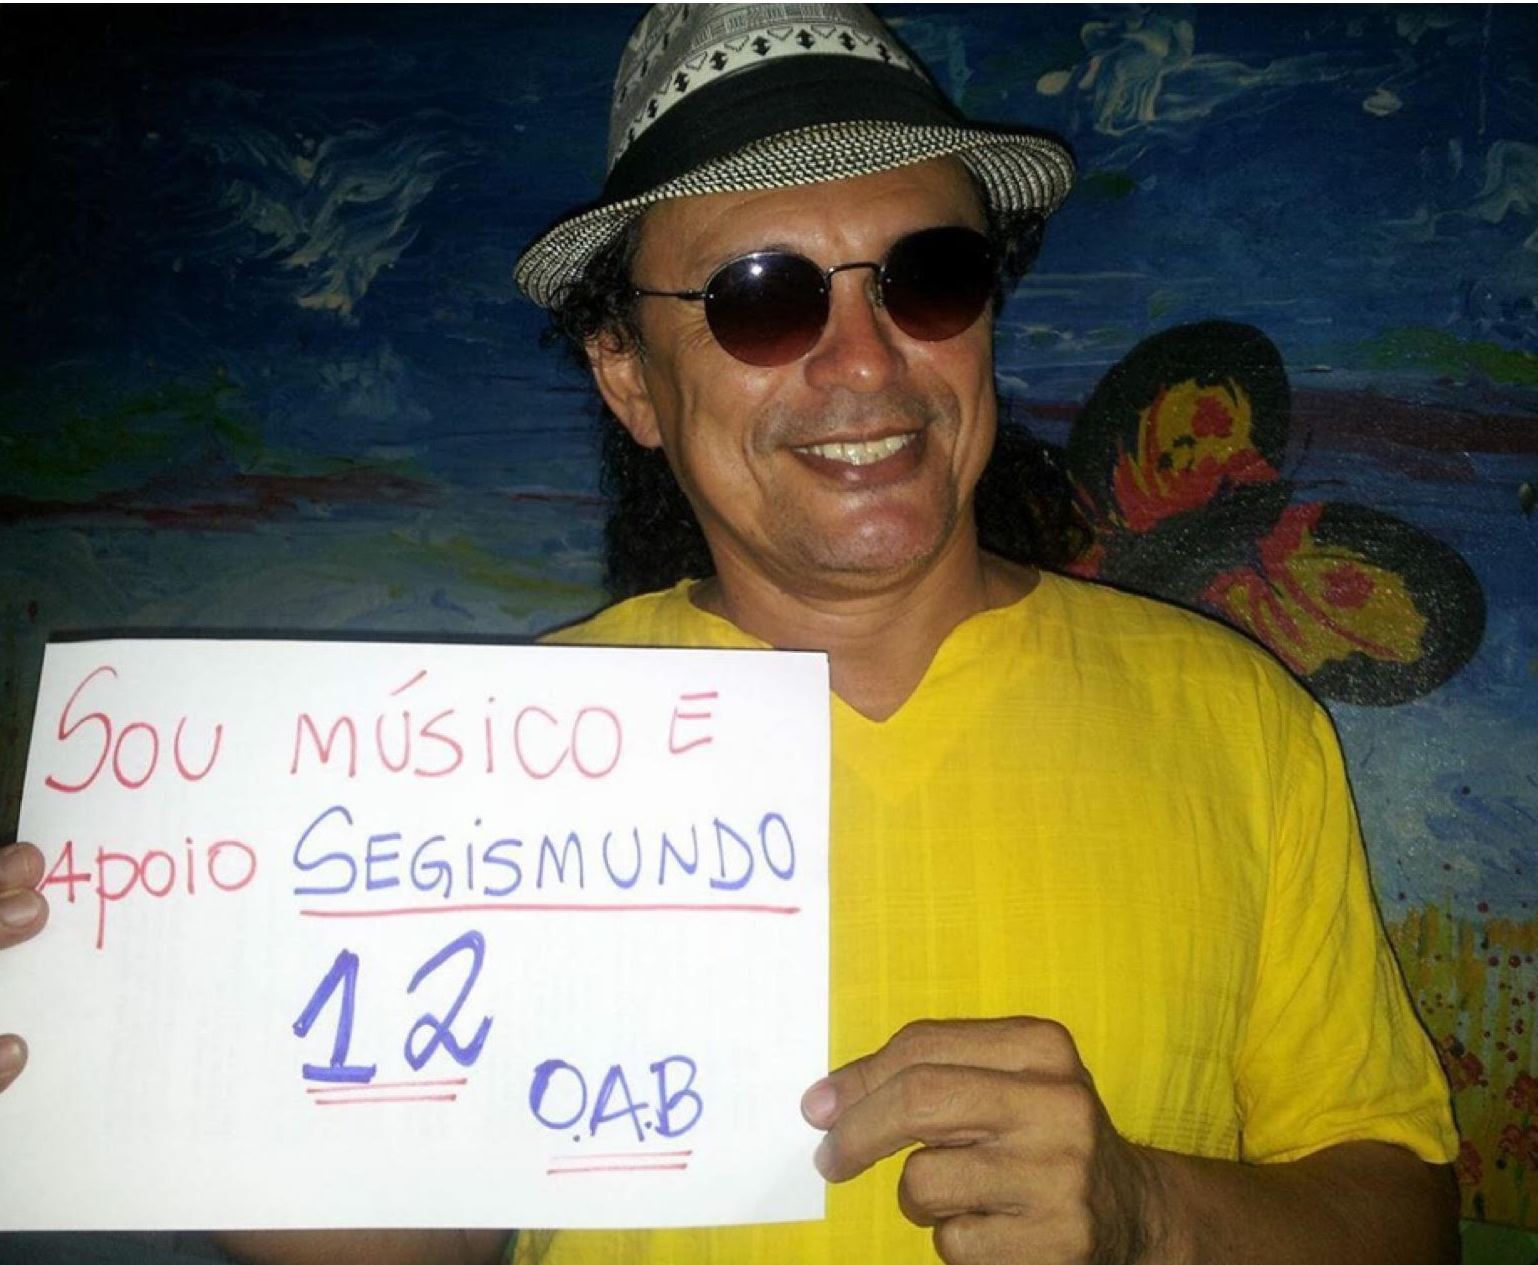 SOU MÚSiCO E
APOiO SEGiSMUNDO
12
O.A.B